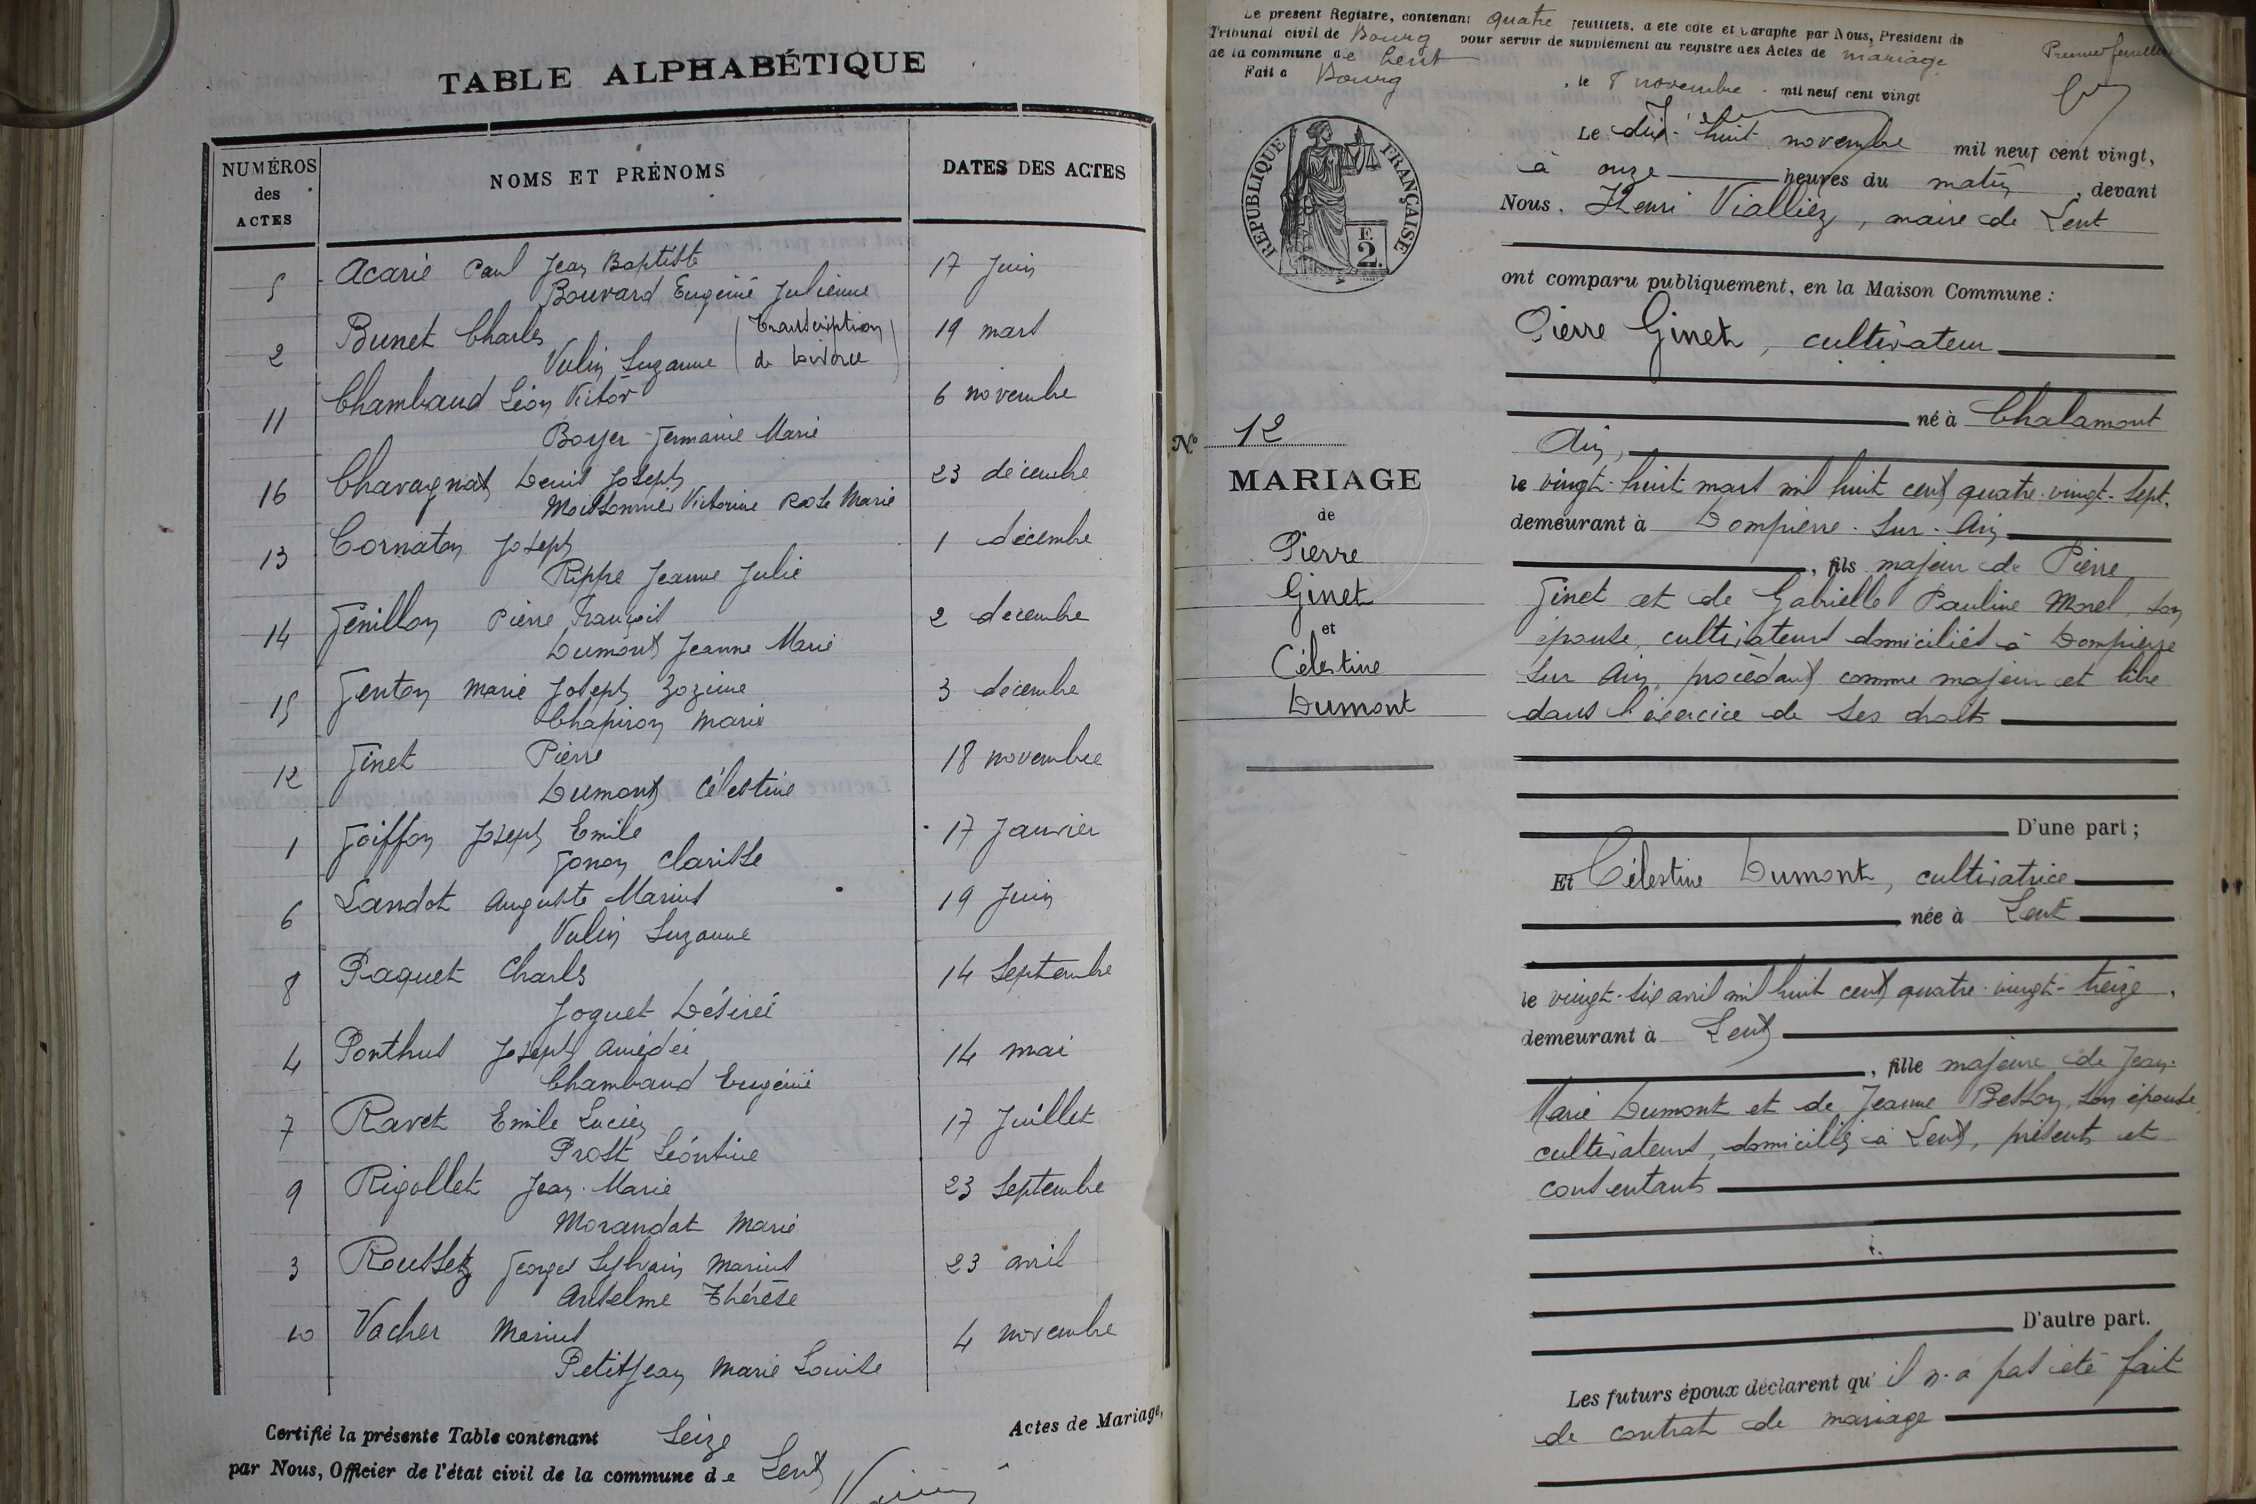 TABLE ALPHABÉTIQUE
NUMÉROS
des
ACTES
NOMS ET PRÉNOMS
DATES DES ACTES
5 Acarie Paul Jean Baptiste 17 Juin
Bouvard Eugénie Julienne
2 Bunet Charles (Transcription 19 mars
Vulin Suzanne de Divorce)
11 Chambaud Léon Victor 6 novembre
Boyer Germanie Marie
16 Chavagnat Denis Joseph 23 décembre
Moissonnier Victorine Rose Marie
13 Cornaton Joseph 1 décembre
Rippe Jeanne Julie
14 Génillon Pierre François 2 décembre
Dumont Jeanne Marie
15 Genton Marie Joseph Zozime 3 décembre
Chapiron Marie
12 Ginet Pierre 18 novembre
Dumont Célestine
1 Goiffon Joseph Emile 17 Janvier
Gonon Clarisse
6 Landot Auguste Marius 19 Juin
Vulin Suzanne
8 Paquet Charles 14 Septembre
Joguet Désirée
4 Ponthus Joseph Amédée 14 mai
Chambaud Eugénie
7 Ravet Emile Lucien 17 Juillet
Prost Léontine
9 Rigollet Jean-Marie 23 Septembre
Morandat Marie
3 Rousset Georges Sylvain Marius 23 avril
Anselme Thérèse
10 Vacher Marius 4 novembre
Petitjean Marie Louise
Certifié la présente Table contenant Seize Actes de Mariage,
par Nous, Officier de l'état civil de la commune de Lent
Le présent Registre, contenant quatre feuillets, a été coté et paraphé par Nous, Président du
Tribunal civil de Bourg pour servir de supplément au registre des Actes de mariage
de la commune de Lent
Fait à Bourg, le 8 novembre mil neuf cent vingt
Premier feuillet
RÉPUBLIQUE FRANÇAISE
2
Le dix-huit novembre mil neuf cent vingt,
à onze heures du matin, devant
Nous, Henri Vialliez, maire de Lent
ont comparu publiquement, en la Maison Commune :
Pierre Ginet, cultivateur
né à Chalamont
Ain,
le vingt-huit mars mil huit cent quatre-vingt-sept,
demeurant à Dompierre-sur-Ain
, fils majeur de Pierre
Ginet et de Gabrielle Pauline Morel, son
épouse, cultivateurs domiciliés à Dompierre
sur Ain, procédant comme majeur et libre
dans l'exercice de ses droits
D'une part ;
N° 12
MARIAGE
de
Pierre
Ginet
et
Célestine
Dumont
Et Célestine Dumont, cultivatrice
née à Lent
le vingt-six avril mil huit cent quatre-vingt-treize,
demeurant à Lent
, fille majeure de Jean-
Marie Dumont et de Jeanne Besson, son épouse,
cultivateurs, domiciliés à Lent, présents et
consentants
D'autre part.
Les futurs époux déclarent qu'il n'a pas été fait
de contrat de mariage